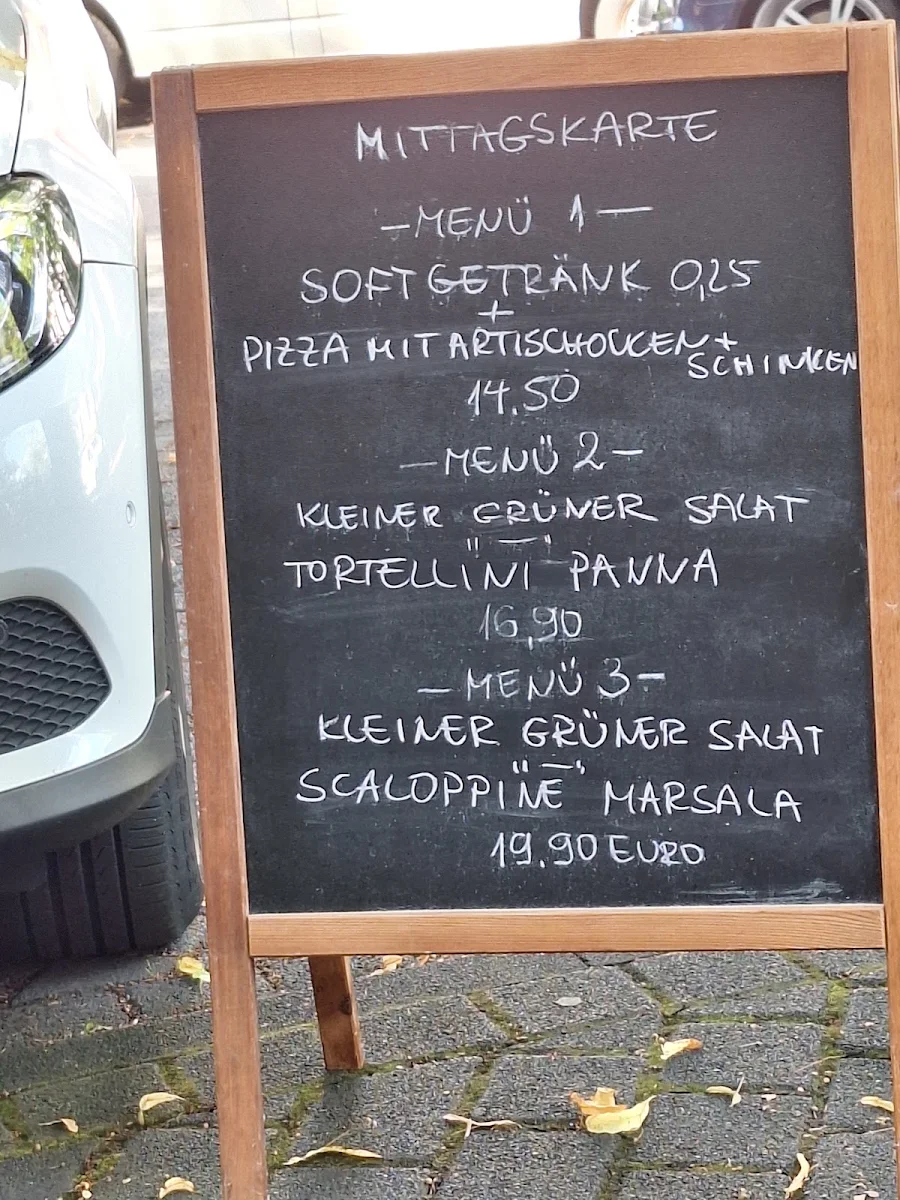 MITTAGSKARTE
– MENÜ 1 –
SOFTGETRÄNK 0,25
+
PIZZA MIT ARTISCHOCKEN +
SCHINKEN
14.50
– MENÜ 2 –
KLEINER GRÜNER SALAT
" – "
TORTELLINI PANNA
16,90
– MENÜ 3 –
KLEINER GRÜNER SALAT
" – "
SCALOPPINE MARSALA
19.90 EURO